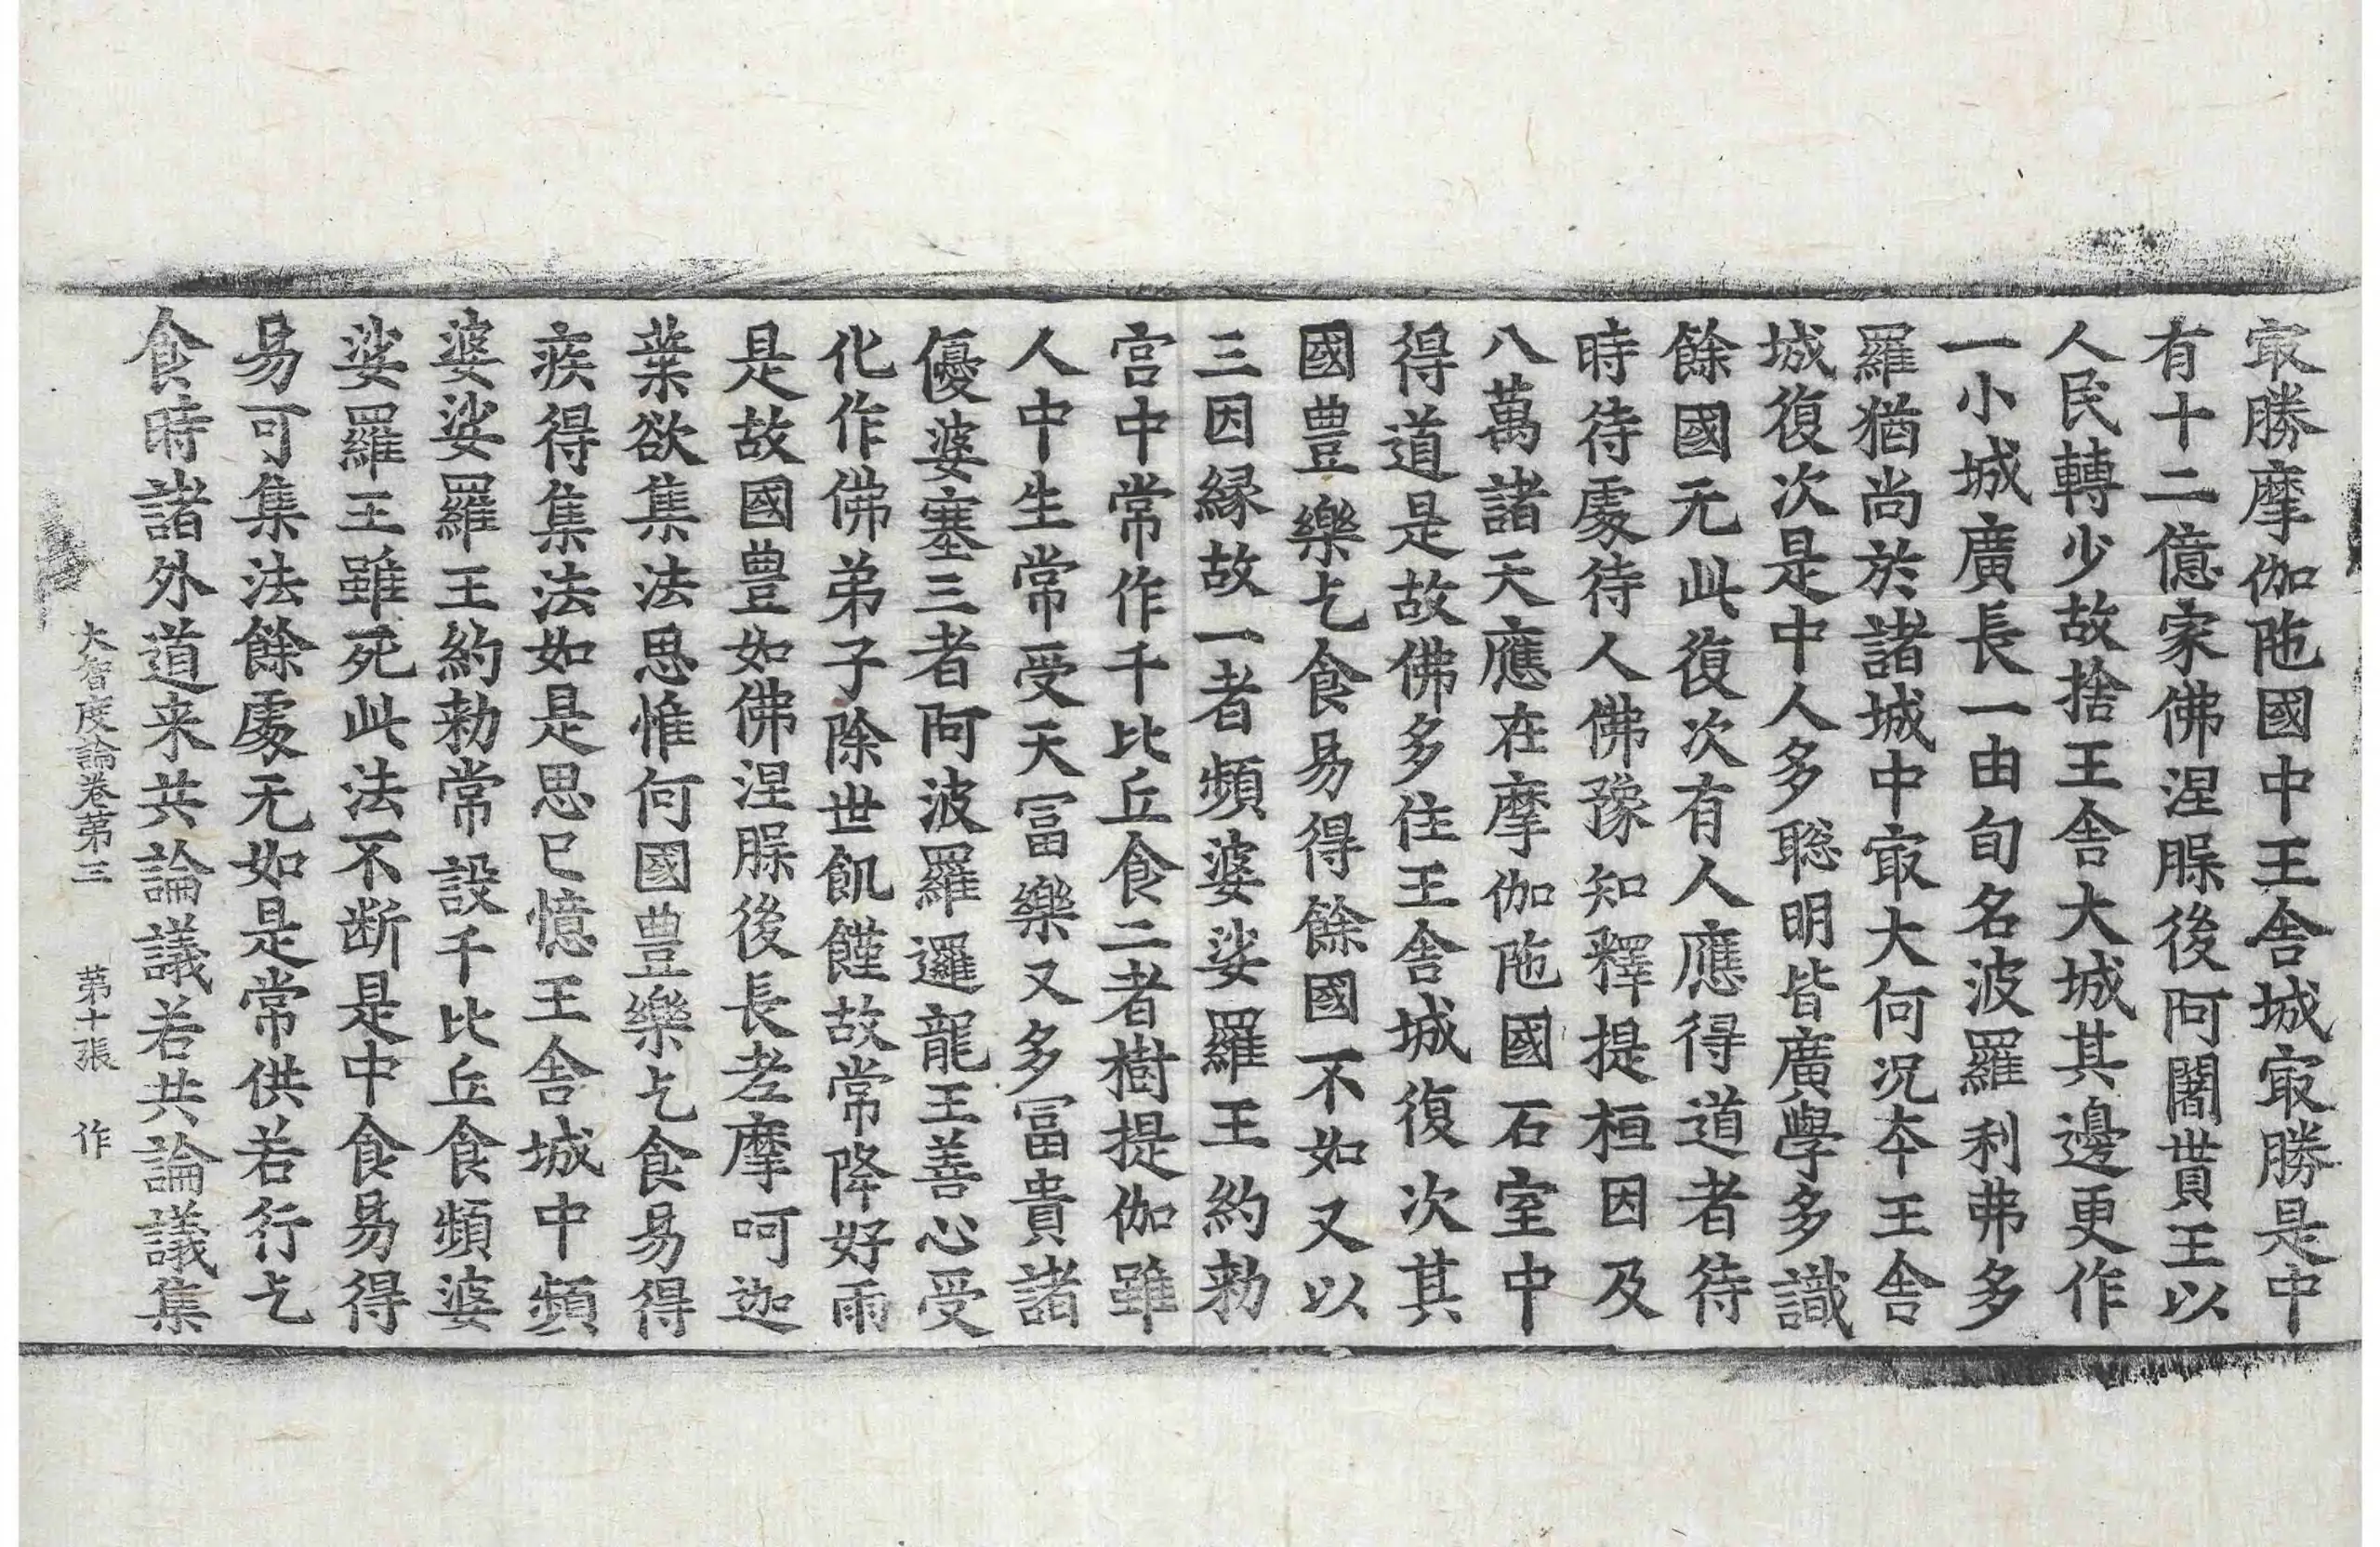 㝡勝摩伽陁國中王舍城㝡勝是中
有十二億家佛涅脵後阿闍貰王以
人民轉少故捨王舍大城其邊更作
一小城廣長一由旬名波羅利弗多
羅猶尚於諸城中㝡大何况夲王舍
城復次是中人多聡明皆廣學多識
餘國无此復次有人應得道者待
時待處待人佛豫知釋提桓因及
八萬諸天應在摩伽陁國石室中
得道是故佛多住王舍城復次其
國豊樂乞食易得餘國不如又以
三因縁故一者頻婆娑羅王約勑
宫中常作千比丘食二者樹提伽雖
人中生常受天冨樂又多冨貴諸
優婆塞三者阿波羅邏龍王善心受
化作佛弟子除世飢饉故常降好雨
是故國豊如佛涅脵後長老摩呵迦
葉欲集法思惟何國豊樂乞食易得
疾得集法如是思已憶王舍城中頻
婆娑羅王約勑常設千比丘食頻婆
娑羅王雖死此法不断是中食易得
易可集法餘處无如是常供若行乞
食時諸外道来共論議若共論議集
大智度論卷第三 第十張 作